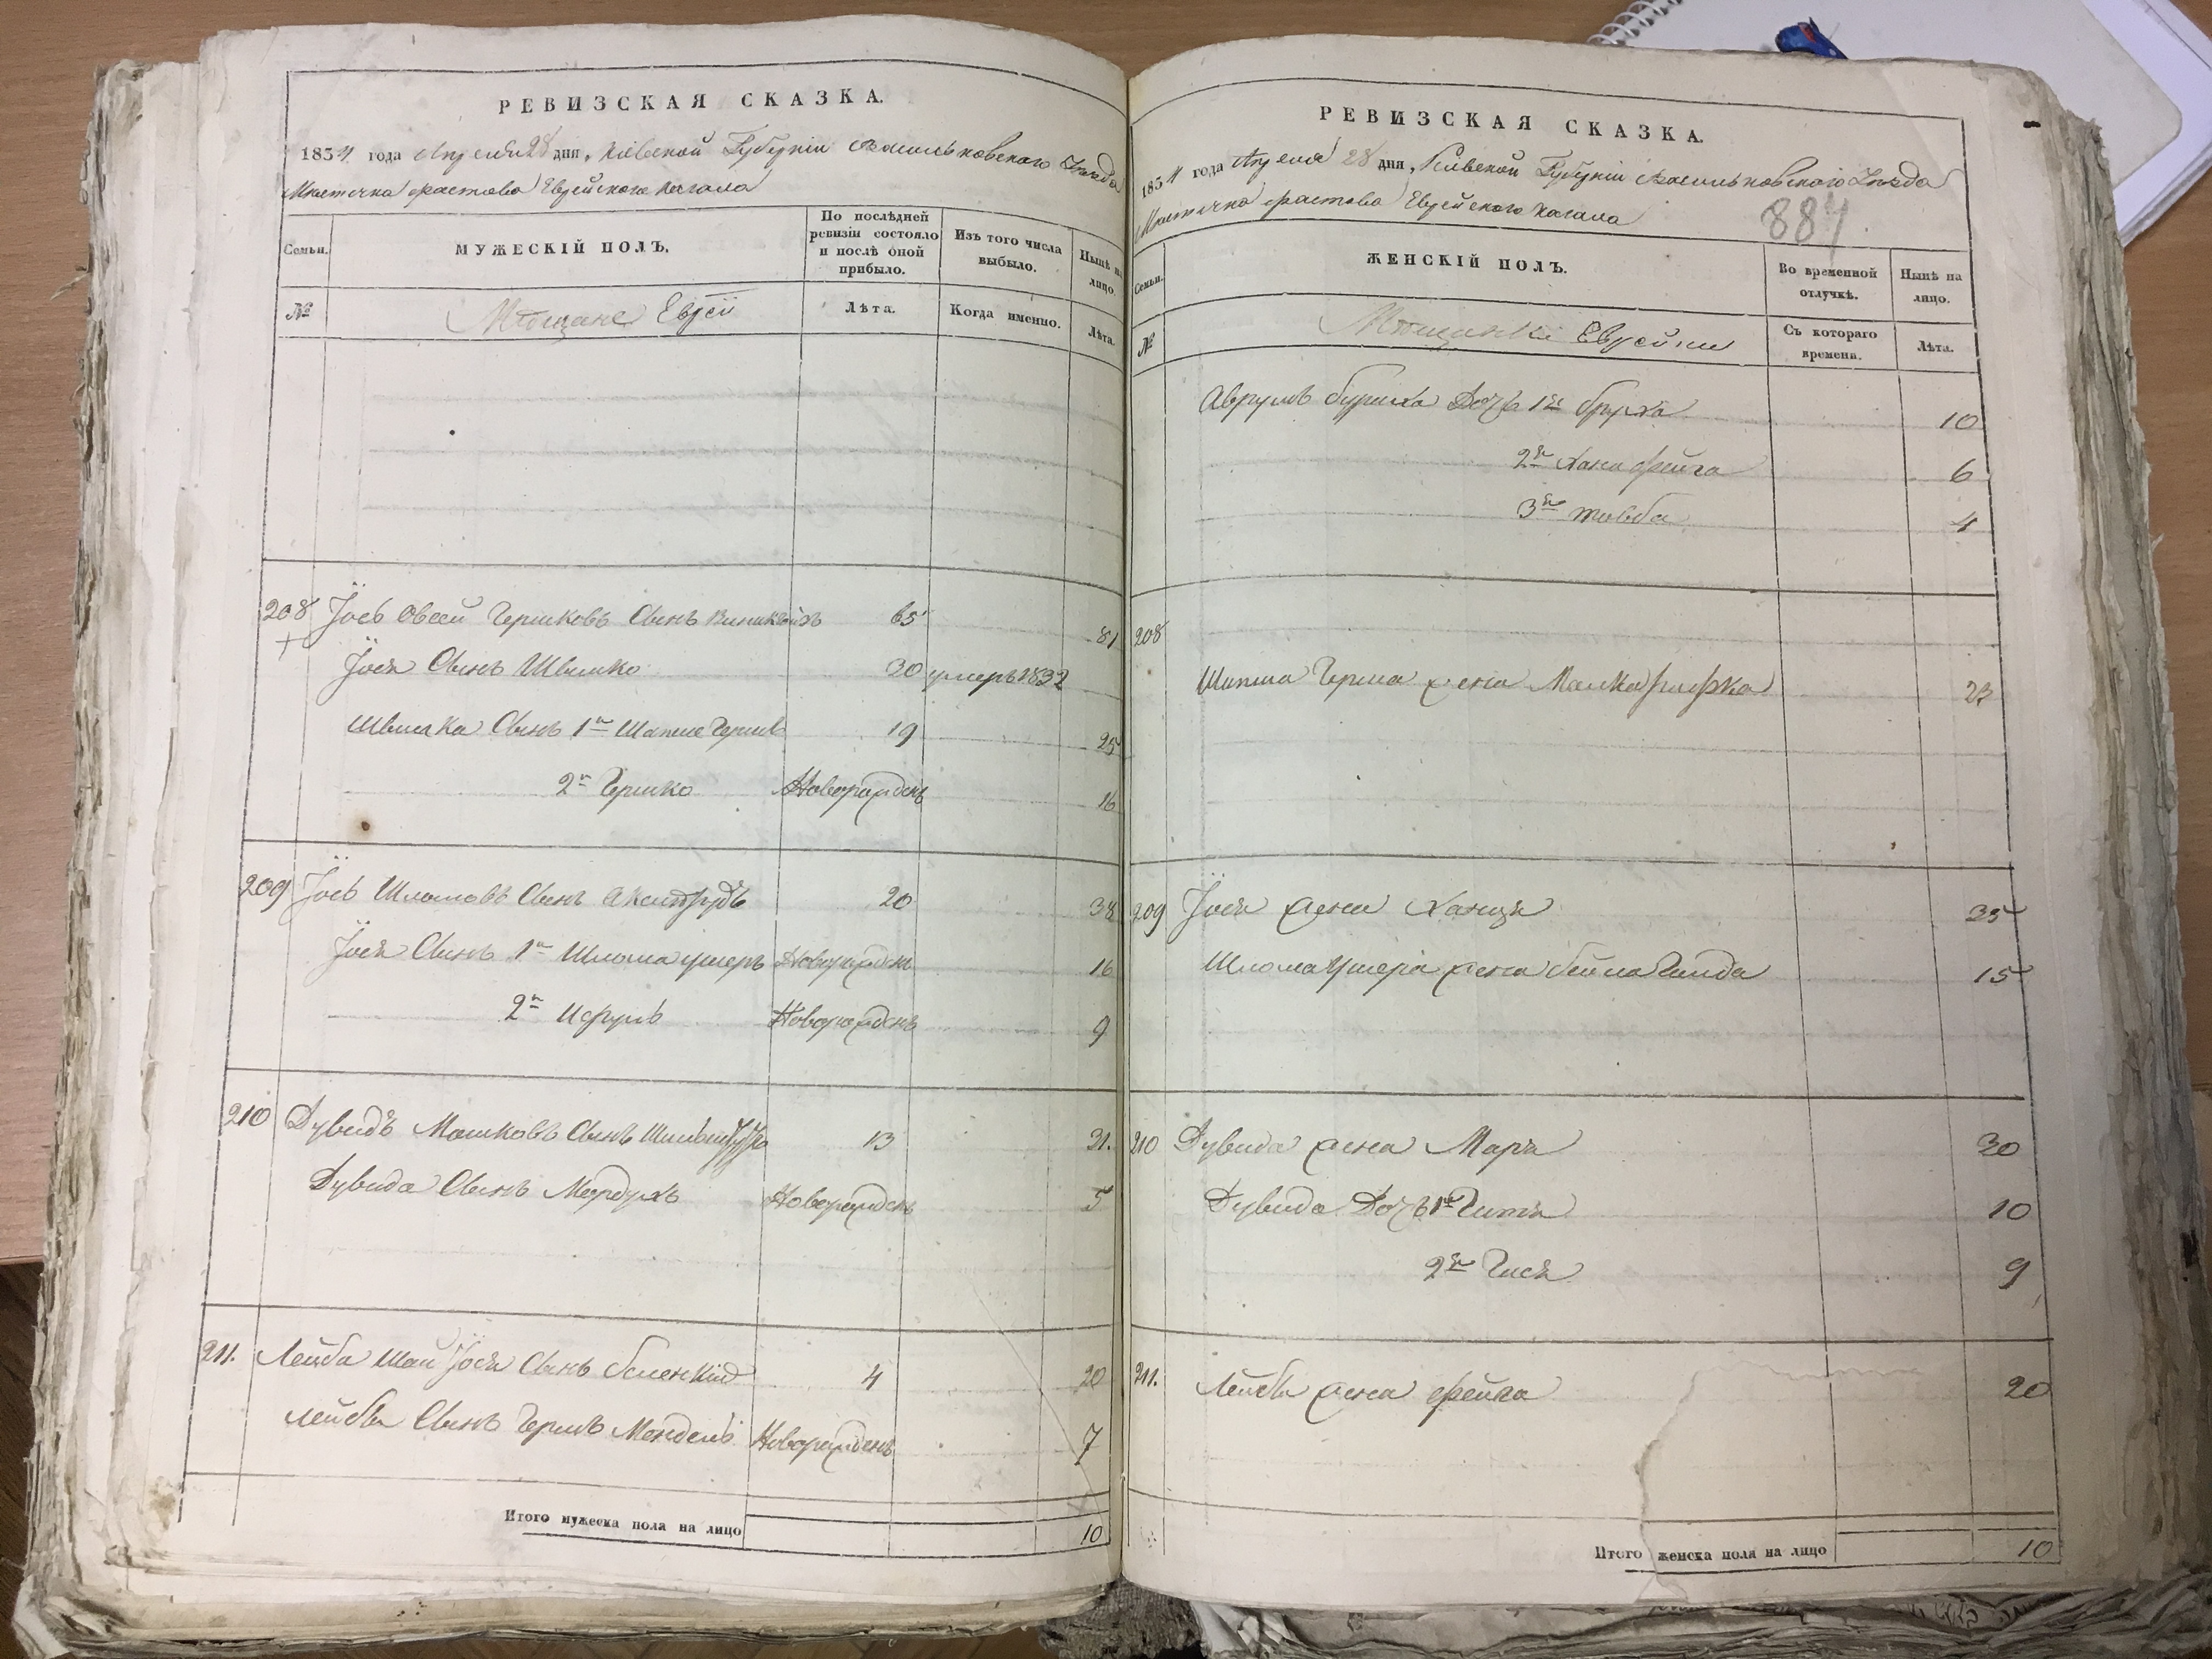 РЕВИЗСКАЯ СКАЗКА.
1834 года Апреля 28 дня, Кіевской Губерніи Васильковскаго Уезда
Местечка Фастова Еврейского Кагала
Семьи.
МУЖЕСКІЙ ПОЛЪ.
По послѣдней ревизіи состояло и послѣ оной прибыло.
Изъ того числа выбыло.
Нынѣ на лицо.
№
Мещане Евреи
Лѣта.
Когда именно.
Лѣта.
208 Іось Овсей Гершковъ Сынъ 65 81
Іося Сынъ Швшко 30 умеръ 1832
Сынъ 1й Шапше Гершъ 19 25
2й Гершко Новорожденъ 16
209 Іось Шломовъ Сынъ 20 38
Іося Сынъ 1й Шлома Ушеръ Новорожденъ 16
2й Исрулъ Новорожденъ 9
210 Дувидъ Мошковъ Сынъ 13 31.
Дувида Сынъ Мордухъ Новорожденъ 5
211. Лейба Шай Іося Сынъ Беленкій 4 20
Лейбы Сынъ Гершъ Мендель Новорожденъ 7
Итого мужеска пола на лицо 10
РЕВИЗСКАЯ СКАЗКА.
1834 года Апреля 28 дня, Кіевской Губерніи Васильковского Уезда
Местечка Фастова Еврейского Кагала
884
Семьи.
ЖЕНСКІЙ ПОЛЪ.
Во временной отлучкѣ.
Нынѣ на лицо.
№
Мещанки Еврейки
Съ котораго времена.
Лѣта.
Аврумъ Дочь 1я Бруха 10
2я Хана Фейга 6
3я Товба 4
208
Шапша Герша жена Малка Рифка 23
209 Іося жена Ханця 35
Шлома Ушера жена Бейла Гинда 15
210 Дувида жена Маря 30
Дувида Дочь 1я Гитя 10
2я Гися 9
211. Лейбы жена Фейга 20
Итого женска пола на лицо 10